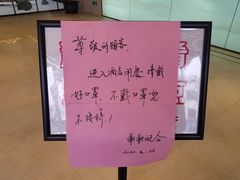 尊敬的顾客:
进入酒店用餐,请戴
好口罩,不戴口罩恕
不接待!
谢谢配合